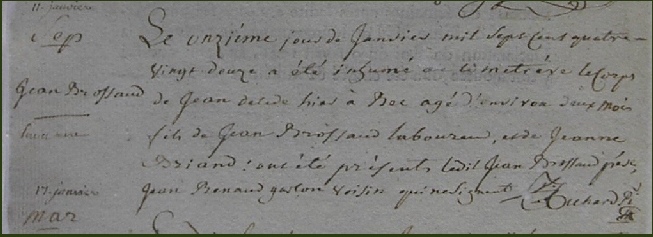 11. janvier
Sep
Jean Brossaud
Le onzième jour de Janvier mil Sept Cent quatre-
vingt douze a été inhumé au cimetrère le Corps
de Jean décédé hier à Boc agé d'environ deux mois
fils de Jean Brossaud laboureur, et de Jeanne
Briand : ont été présents ledit Jean Brossaud père,
Jean Renaud gaston voisin qui ne Signent
Richard
17. janvier
mar